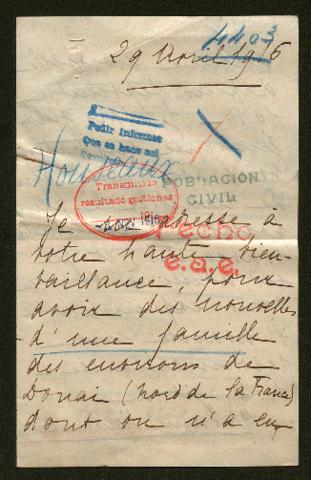 4403
29 Avril 1916
Pedir informes
Que se hace saber
Houseaux
Transmitido
resultado gestiones
POBLACIÓN
CIVIL
Je m'adresse à
Fecho
votre haute bien-
e.a.e.
veillance, pour
avoir des nouvelles
d'une famille
des environs de
Douai (nord de la France)
dont on n'a eu